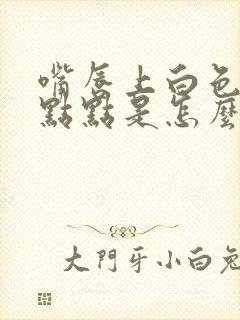 嘴唇上白色
點點是怎麼
大門牙小白兔